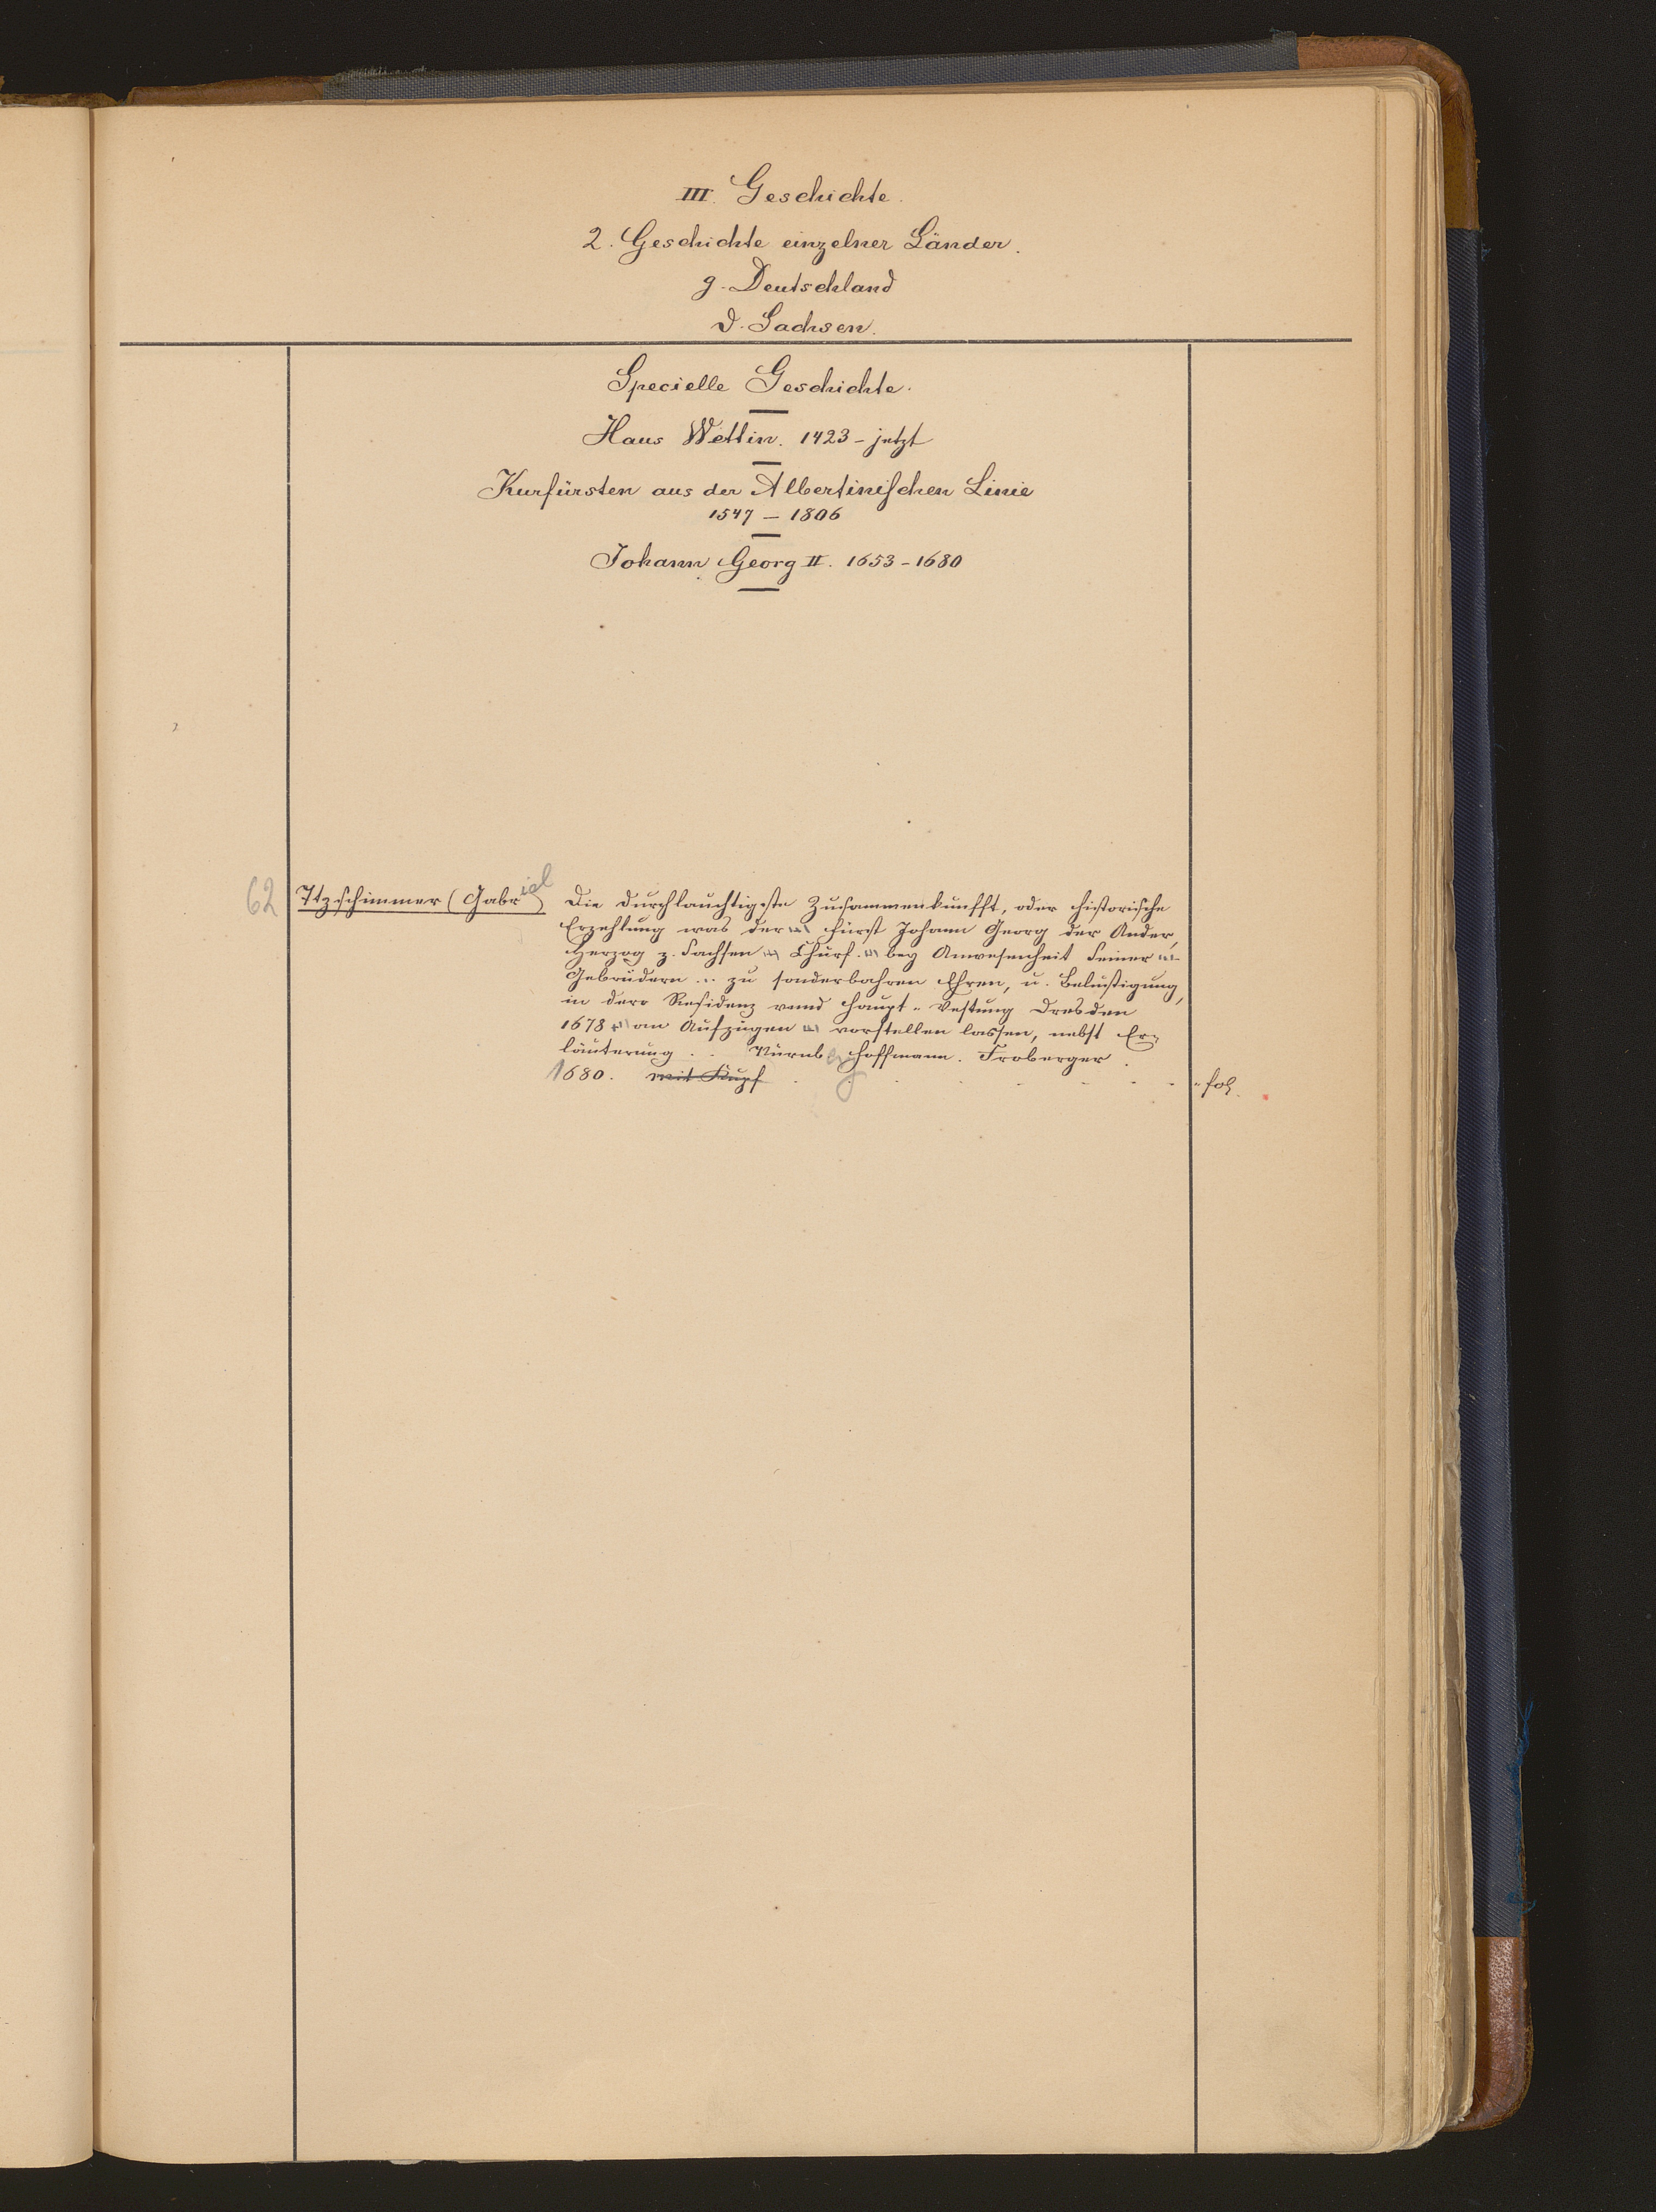 III. Geschichte.
2. Geschichte einzelner Länder.
g. Deutschland
d. Sachsen.
Specielle Geschichte.
Haus Wettin. 1423 - jetzt
Kurfürsten aus der Albertinischen Linie
1547 — 1806
Johann Georg II. 1653 - 1680
62 Tzschimmer (Gabriel) Die durchlauchtigste Zusammenkunfft, oder historische
Erzehlung was der ... fürst Johann Georg der Ander,
Herzog z. Sachsen ... Churf. ... bey Anwesenheit Seiner ...
Gebrüdern ... zu sonderbahren Ehren, u. Belustigung,
in dero Residenz vnnd Haupt-Vestung Dresden
1678 ... an Aufzügen ... vorstellen lassen, nebst Er-
läuterung .. Nürnberg Hoffmann. Froberger.
1680. mit Kupf fol.